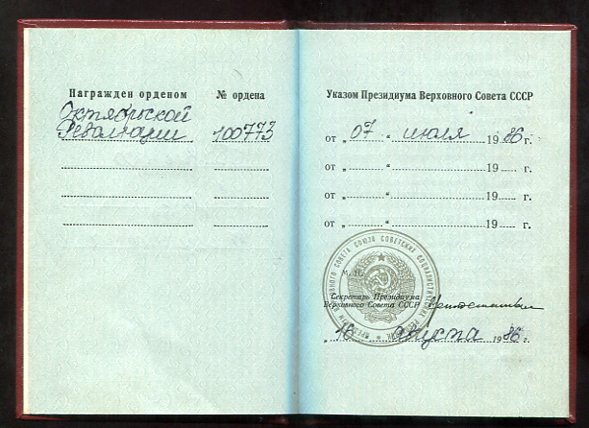 Награжден орденом № ордена
Октябрьской
Революции 100773
Указом Президиума Верховного Совета СССР
от „ 07 “ июля 1986 г.
от „ “ 19 г.
от „ “ 19 г.
от „ “ 19 г.
М. П.
Секретарь Президиума
Верховного Совета СССР
„ 16 “ августа 1986 г.